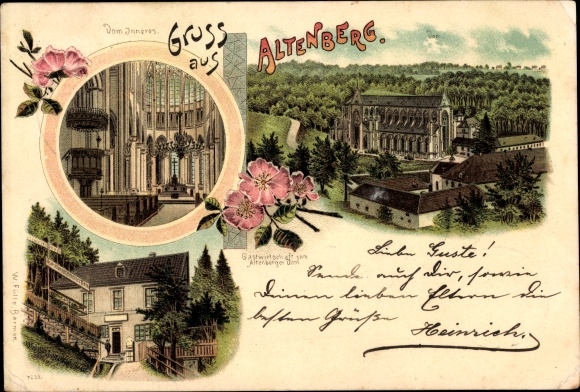 Dom Inneres.
Gruss
aus
ALTENBERG.
Dom
Gastwirtschaft zum
Altenberger Dom.
Liebe Guste!
Sende auch Dir, sowie
Deinen lieben Eltern die
besten Grüße
Heinrich.
W. Fülle, Barmen.